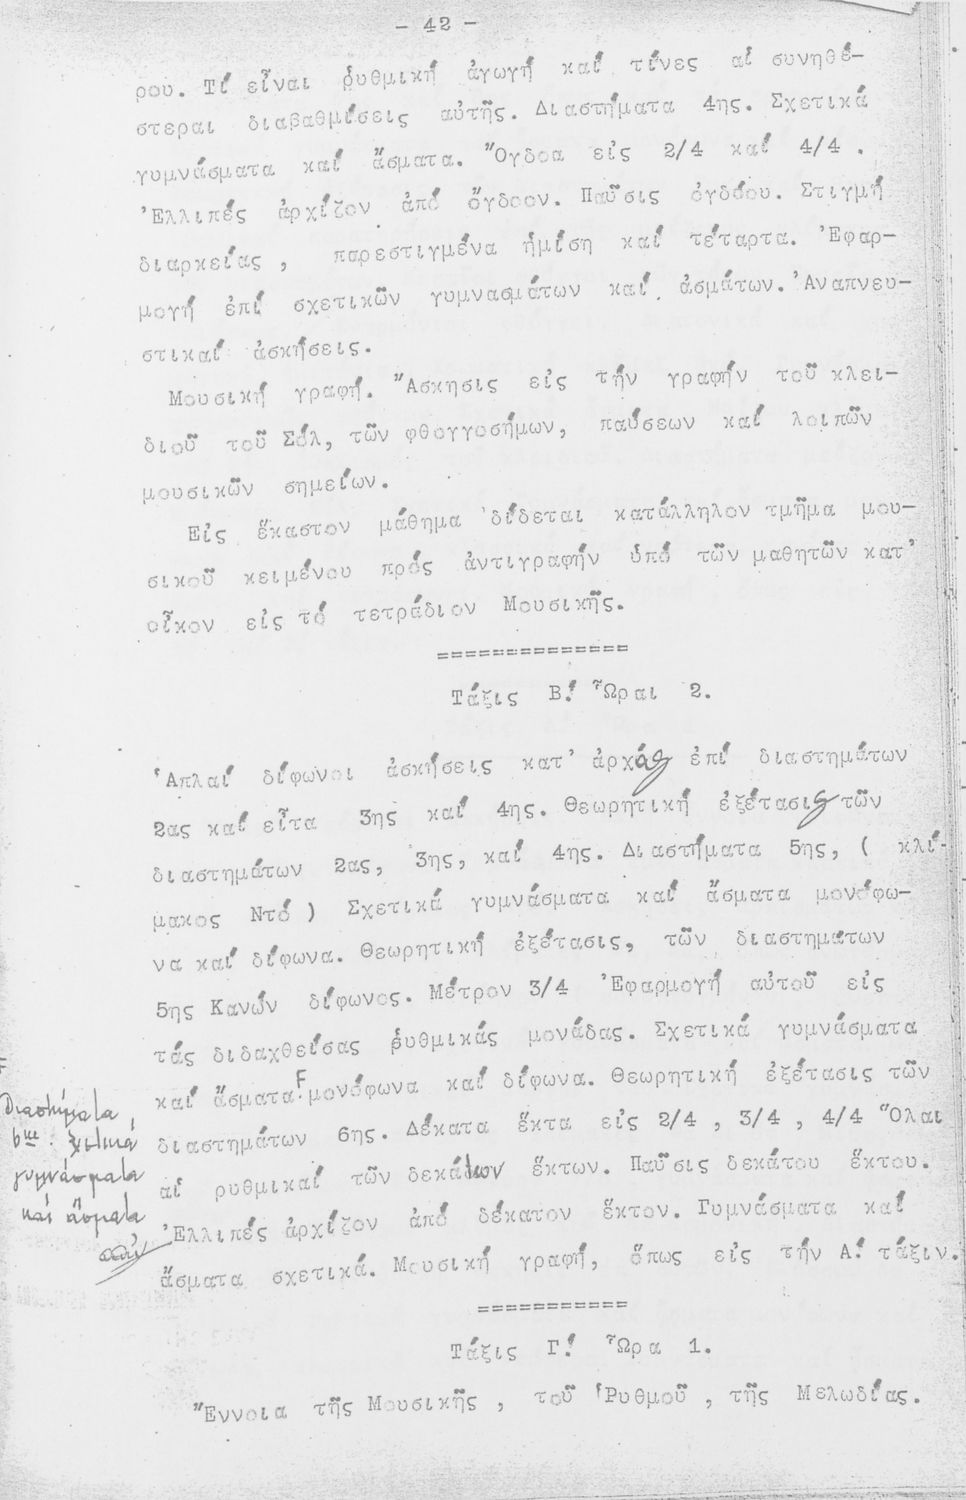 - 42 -
ρου. Τί εἶναι ῥυθμική ἀγωγή καί τίνες αἱ συνηθέ-
στεραι διαβαθμίσεις αὐτῆς. Διαστήματα 4ης. Σχετικά
γυμνάσματα καί ἄσματα. Ὄγδοα εἰς 2/4 καί 4/4 .
Ἐλλιπές ἀρχίζον ἀπό ὄγδοον. Παῦσις ὀγδόου. Στιγμή
διαρκείας , παρεστιγμένα ἡμίση καί τέταρτα. Ἐφαρ-
μογή ἐπί σχετικῶν γυμνασμάτων καί ἀσμάτων. Ἀναπνευ-
στικαί ἀσκήσεις.
Μουσική γραφή. Ἄσκησις εἰς τήν γραφήν τοῦ κλει-
διοῦ τοῦ Σόλ, τῶν φθογγοσήμων, παύσεων καί λοιπῶν
μουσικῶν σημείων.
Εἰς ἕκαστον μάθημα δίδεται κατάλληλον τμῆμα μου-
σικοῦ κειμένου πρός ἀντιγραφήν ὑπό τῶν μαθητῶν κατ'
οἶκον εἰς τό τετράδιον Μουσικῆς.
==============
Τάξις Β! Ὧραι 2.
Ἁπλαί δίφωνοι ἀσκήσεις κατ' ἀρχάς ἐπί διαστημάτων
2ας καί εἶτα 3ης καί 4ης. Θεωρητική ἐξέτασις τῶν
διαστημάτων 2ας, 3ης, καί 4ης. Διαστήματα 5ης, ( κλί-
μακος Ντό ) Σχετικά γυμνάσματα καί ἄσματα μονόφω-
να καί δίφωνα. Θεωρητική ἐξέτασις, τῶν διαστηματων
5ης Κανών δίφωνος. Μέτρον 3/4 Ἐφαρμογή αὐτοῦ εἰς
τάς διδαχθείσας ῥυθμικάς μονάδας. Σχετικά γυμνάσματα
καί ἄσματα F μονόφωνα καί δίφωνα. Θεωρητική ἐξέτασις τῶν
διαστημάτων 6ης. Δέκατα ἕκτα εἰς 2/4 , 3/4 , 4/4 Ὅλαι
αἱ ρυθμικαί τῶν δεκάτων ἕκτων. Παῦσις δεκάτου ἕκτου.
Ἐλλιπές ἀρχίζον ἀπό δέκατον ἕκτον. Γυμνάσματα καί
ἄσματα σχετικά. Μουσική γραφή, ὅπως εἰς τήν Α! τάξιν.
===========
Τάξις Γ! Ὧρα 1.
Ἔννοια τῆς Μουσικῆς , τοῦ Ῥυθμοῦ , τῆς Μελωδίας.
F
Διαστήματα
6ης. Σχετικά
γυμνάσματα
καί ἄσματα